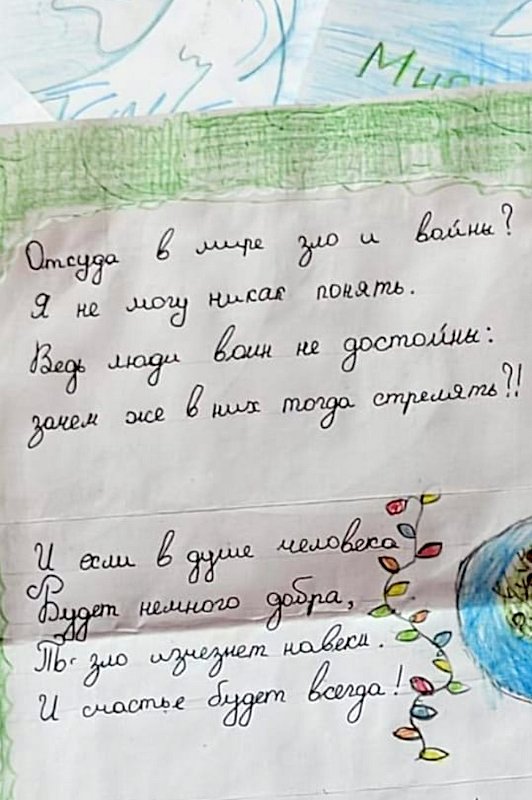 Отсуда в мире зло и войны?
Я не могу никак понять.
Ведь люди воин не достойны:
зачем же в них тогда стрелять?!
И если в душе человека
Будет немного добра,
зло изчезнет навеки.
И счастье будет всегда!